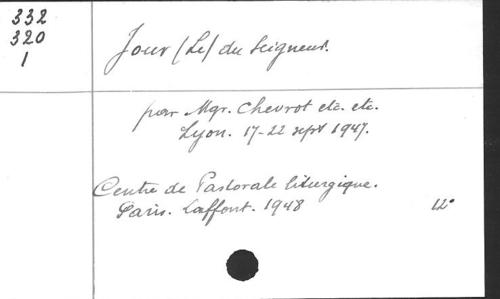 332
320
1
Jour (Le) du Seigneur.
par Mgr. Chevrot etc. etc.
Lyon. 17-22 sept 1947.
Centre de Pastorale liturgique.
Paris. Laffont. 1948 12°